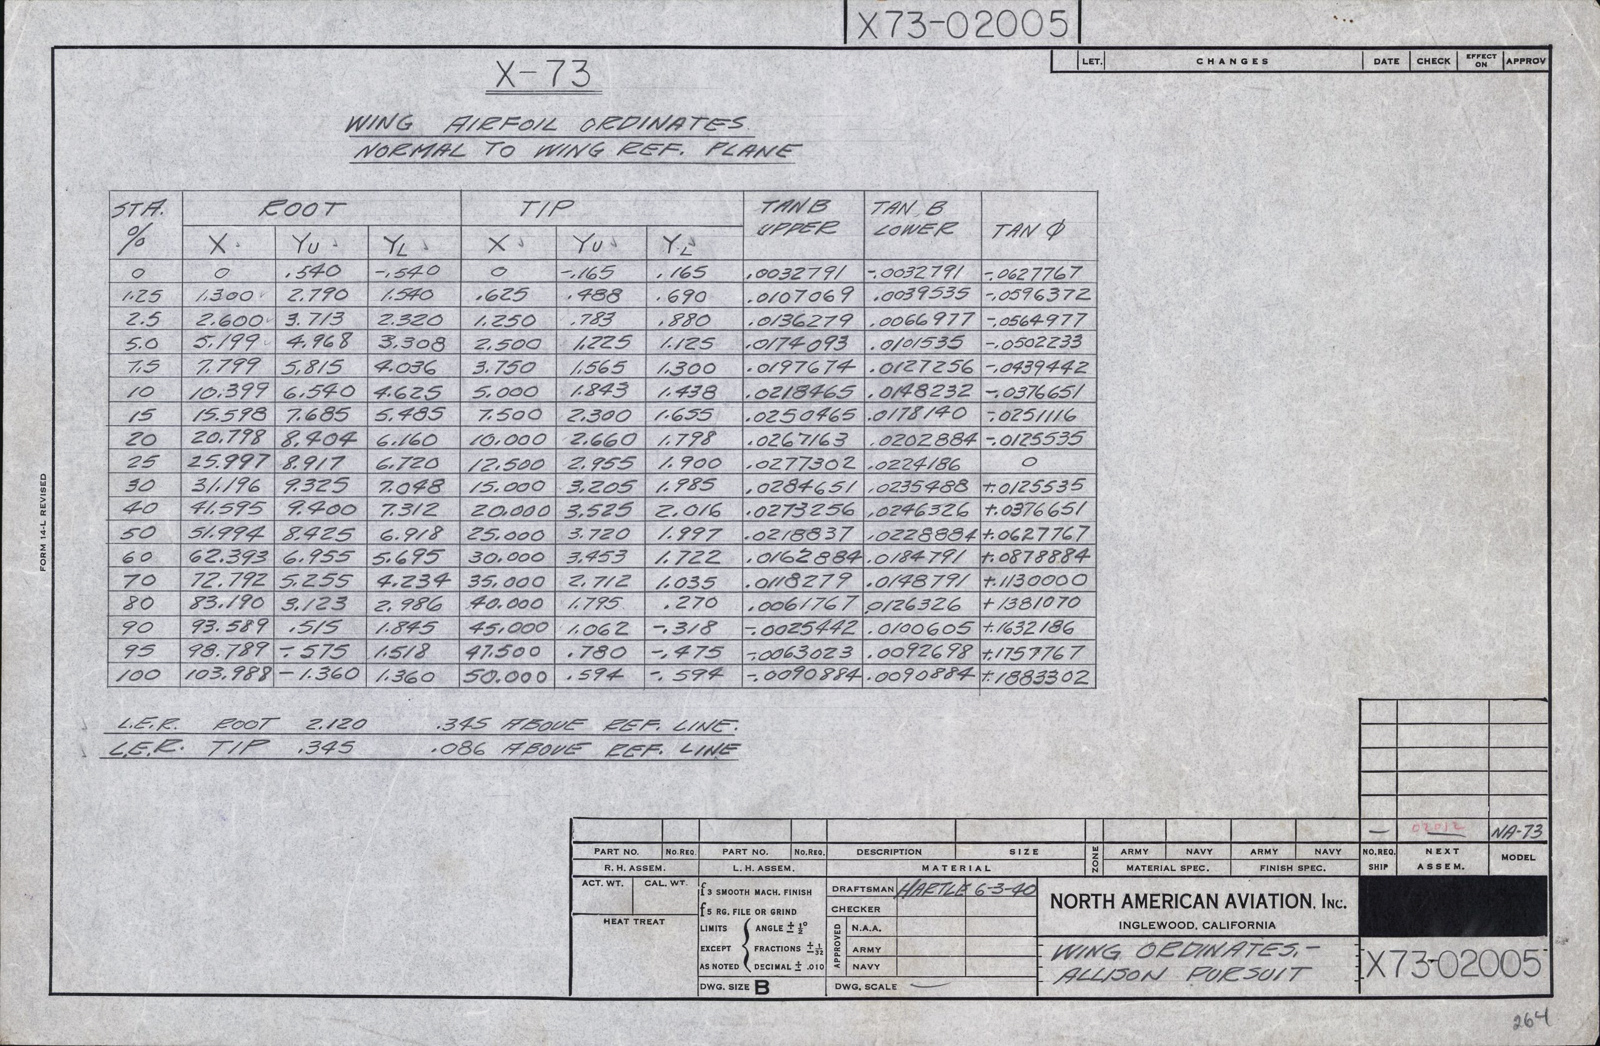 X73-02005
LET. CHANGES DATE CHECK EFFECT ON APPROV
X-73
WING AIRFOIL ORDINATES
NORMAL TO WING REF. PLANE
STA. % ROOT TIP TAN B UPPER TAN B LOWER TAN Φ
X YU YL X YU YL
0 0 .540 -.540 0 -.165 .165 .0032791 -.0032791 -.0627767
1.25 1.300 2.790 1.540 .625 .488 .690 .0107069 .0039535 -.0596372
2.5 2.600 3.713 2.320 1.250 .783 .880 .0136279 .0066977 -.0564977
5.0 5.199 4.968 3.308 2.500 1.225 1.125 .0174093 .0101535 -.0502233
7.5 7.799 5.815 4.036 3.750 1.565 1.300 .0197674 .0127256 -.0439442
10 10.399 6.540 4.625 5.000 1.843 1.438 .0218465 .0148232 -.0376651
15 15.598 7.685 5.485 7.500 2.300 1.655 .0250465 .0178140 -.0251116
20 20.798 8.404 6.160 10.000 2.660 1.798 .0267163 .0202884 -.0125535
25 25.997 8.917 6.720 12.500 2.955 1.900 .0277302 .0224186 0
30 31.196 9.325 7.048 15.000 3.205 1.985 .0284651 .0235488 +.0125535
40 41.595 9.400 7.312 20.000 3.525 2.016 .0273256 .0246326 +.0376651
50 51.994 8.425 6.918 25.000 3.720 1.997 .0218837 .0228884 +.0627767
60 62.393 6.955 5.695 30.000 3.453 1.722 .0162884 .0184791 +.0878884
70 72.792 5.255 4.234 35.000 2.712 1.035 .0118279 .0148791 +.1130000
80 83.190 3.123 2.986 40.000 1.795 .270 .0061767 .0126326 +.1381070
90 93.589 .515 1.845 45.000 1.062 -.318 -.0025442 .0100605 +.1632186
95 98.789 -.575 1.518 47.500 .780 -.475 -.0063023 .0092698 +.1757767
100 103.988 -1.360 1.360 50.000 .594 -.594 -.0090884 .0090884 +.1883302
L.E.R. ROOT 2.120 .345 ABOVE REF. LINE.
L.E.R. TIP .345 .086 ABOVE REF. LINE
FORM 14-L REVISED
— 02012 NA-73
PART NO. NO.REQ. PART NO. NO.REQ. DESCRIPTION SIZE ZONE ARMY NAVY ARMY NAVY NO.REQ. SHIP NEXT ASSEM. MODEL
R.H. ASSEM. L.H. ASSEM. MATERIAL MATERIAL SPEC. FINISH SPEC.
ACT. WT. CAL. WT.
HEAT TREAT
f3 SMOOTH MACH. FINISH
f5 RG. FILE OR GRIND
LIMITS EXCEPT AS NOTED
ANGLE ± ½°
FRACTIONS ± 1/32
DECIMAL ± .010
DWG. SIZE B
DRAFTSMAN HARTLE 6-3-40
CHECKER
APPROVED
N.A.A.
ARMY
NAVY
DWG. SCALE —
NORTH AMERICAN AVIATION, INC.
INGLEWOOD, CALIFORNIA
WING ORDINATES.-
ALLISON PURSUIT
X73-02005
264